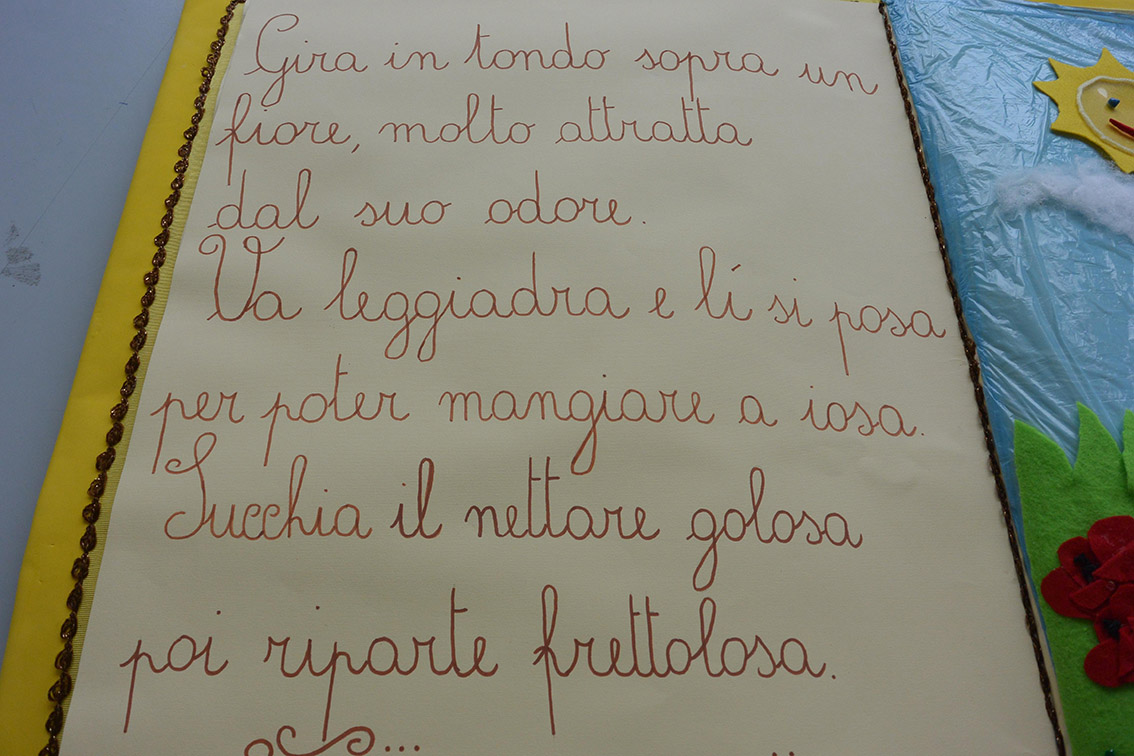 Gira in tondo sopra un
fiore, molto attratta
dal suo odore.
Va leggiadra e lí si posa
per poter mangiare a iosa.
Succhia il nettare golosa
poi riparte frettolosa.